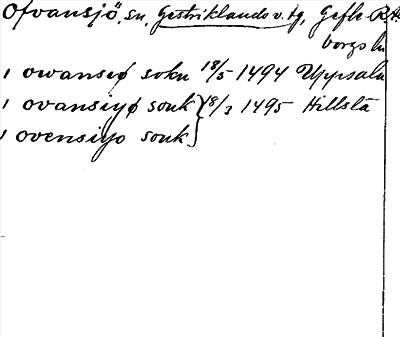 Ofvansjö, sn. Gestriklands v. tg, Gefle-
borgs län
i owansiø sokn 18/5 1494 Uppsala
i ovansiyø souk } 18/3 1495 Hillsta
i ovensiyo souk